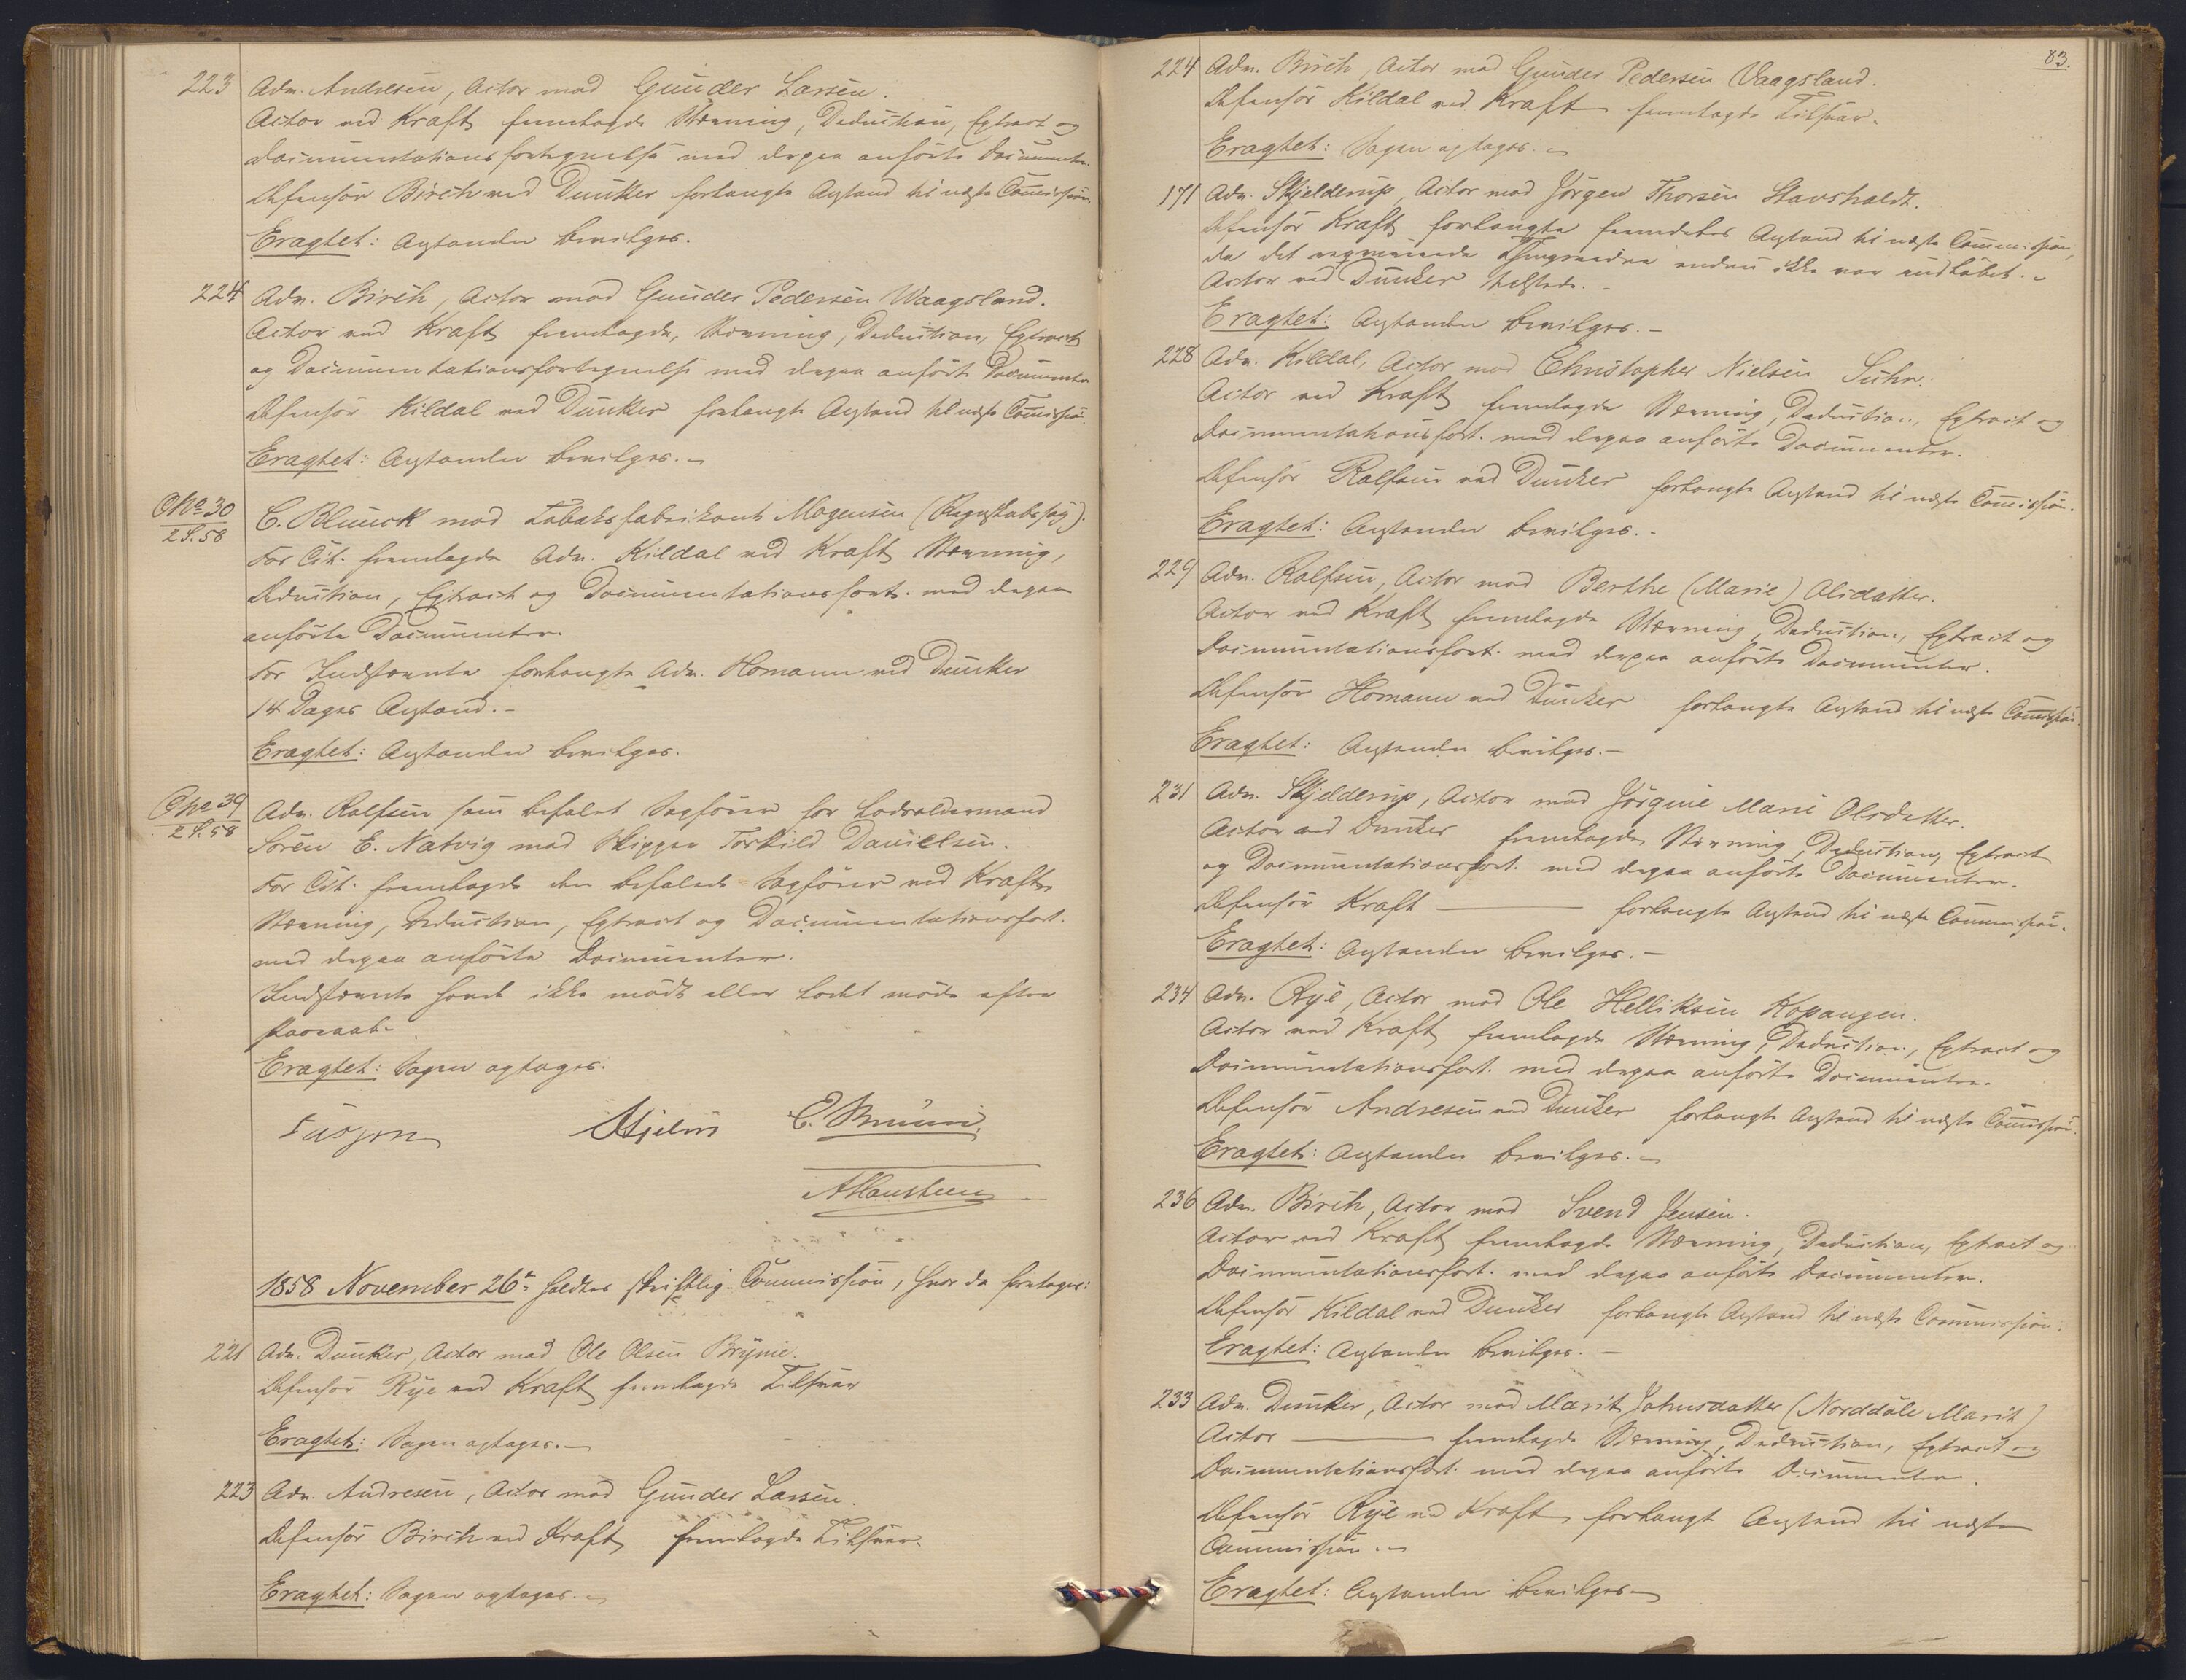 223 Adv. Andresen, Actor mod Gunder Larsen.
Actor ved Kraft fremlagde Stævning, Deduction, Extract og
Documentationsfortegnelse med derpaa anførte Documenter.
Defensor Birch ved Dunker forlangte Anstand til næste Commission.
Eragtet: Anstanden bevilges.
224 Adv. Birch, Actor mod Gunder Pedersen Waagsland.
Actor ved Kraft fremlagde, Stævning, Deduction, Extract
og Documentationsfortegnelse med derpaa anførte Documenter
Defensor Kildal ved Dunker forlangte Anstand til næste Commission.
Eragtet: Anstanden bevilges.
No 30
2 S. 58
C. Blunck mod Tobaksfabrikant Mogensen (Regnskabssag).
For Cit. fremlagde Adv. Kildal ved Kraft Stævning,
Deduction, Extract og Documentationsfort. med derpaa
anførte Documenter.
For Indstævnte forlangte Adv. Homann ved Dunker
14 Dages Anstand.
Eragtet: Anstanden bevilges.
No 39
2 S. 58
Adv. Rolfsen som befalet Sagfører for Lodsoldermand
Søren E. Natvig mod Skipper Torkild Danielsen.
For Cit. fremlagde den befalede Sagfører ved Kraft
Stævning, Deduction, Extract og Documentationsfort.
med derpaa anførte Documenter.
Indstævnte havde ikke mødt eller ladet møde efter
Paaraab.
Eragtet: Sagen optages.
Hjelm E. Bruun
AHansteen
1858 November 26de holdtes skriftlig Commission, hvor da foretoges:
221 Adv. Dunker, Actor mod Ole Olsen Brynie.
Defensor Rye ved Kraft fremlagde Tilsvar
Eragtet: Sagen optages.
223 Adv. Andresen, Actor mod Gunder Larsen.
Defensor Birch ved Kraft fremlagde Tilsvar.
Eragtet: Sagen optages.
83.
224 Adv. Birch, Actor mod Gunder Pedersen Vaagsland.
Defensor Kildal ved Kraft fremlagde Tilsvar.
Eragtet: Sagen optages.
171 Adv. Skjelderup, Actor mod Jørgen Thorsen Stavsholdt.
Defensor Kraft forlangte fremdeles Anstand til næste Commission,
da det endnu ikke var indløbet.
Actor ved Dunker tilstede.
Eragtet: Anstanden bevilges.
228 Adv. Kildal, Actor mod Christopher Nielsen Suhr.
Actor ved Kraft fremlagde Stævning, Deduction, Extract og
Documentationsfort. med derpaa anførte Documenter.
Defensor Rolfsen ved Dunker forlangte Anstand til næste Commission.
Eragtet: Anstanden bevilges.
229 Adv. Rolfsen, Actor mod Berthe (Marie) Olsdatter.
Actor ved Kraft fremlagde Stævning, Deduction, Extract og
Documentationsfort. med derpaa anførte Documenter.
Defensor Homann ved Dunker forlangte Anstand til næste Commission.
Eragtet: Anstanden bevilges.
231 Adv. Skjelderup, Actor mod Jørgine Marie Olsdatter.
Actor ved Dunker fremlagde Stævning, Deduction, Extract
og Documentationsfort. med derpaa anførte Documenter.
Defensor Kraft forlangte Anstand til næste Commission.
Eragtet: Anstanden bevilges.
234 Adv. Rye, Actor mod Ole Helliksen Kopangen.
Actor ved Kraft fremlagde Stævning, Deduction, Extract og
Documentationsfort. med derpaa anførte Documenter.
Defensor Andresen ved Dunker forlangte Anstand til næste Commission.
Eragtet: Anstanden bevilges.
236 Adv. Birch, Actor mod Svend Jensen.
Actor ved Kraft fremlagde Stævning, Deduction, Extract og
Documentationsfort. med derpaa anførte Documenter.
Defensor Kildal ved Dunker forlangte Anstand til næste Commission.
Eragtet: Anstanden bevilges.
233 Adv. Dunker, Actor mod Marit Johnsdatter (Norddøle Marit)
Actor fremlagde Stævning, Deduction, Extract og
Documentationsfort. med derpaa anførte Documenter.
Defensor Rye ved Kraft forlangt Anstand til næste
Commission.
Eragtet: Anstanden bevilges